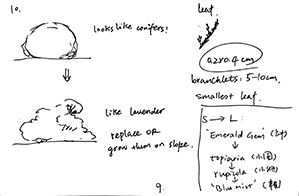 10.
looks like conifers!
like lavender
replace or
grow them on slope.
9.
leaf
0.2x0.4cm
branchlets: 5-10cm.
smallest leaf.
S → L:
"Emerald Gem"
topiaria
rupicola
"Blue mist"